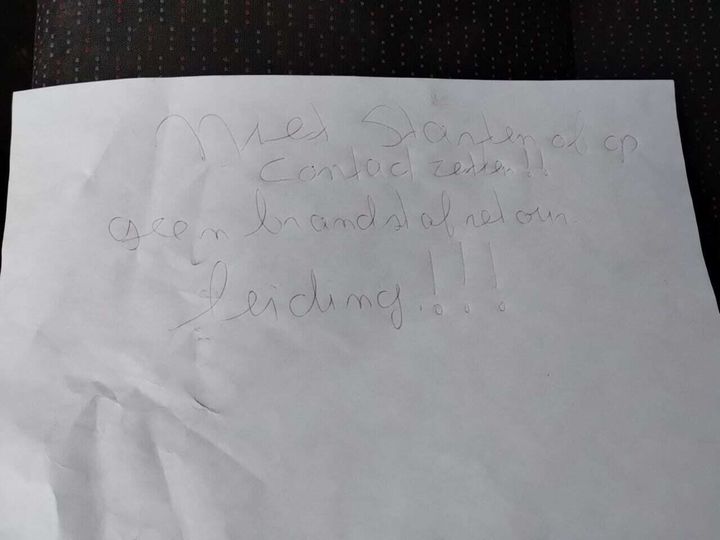 Niet Starten of op
Contact zetten!!
geen brandstof retour
leiding!!!